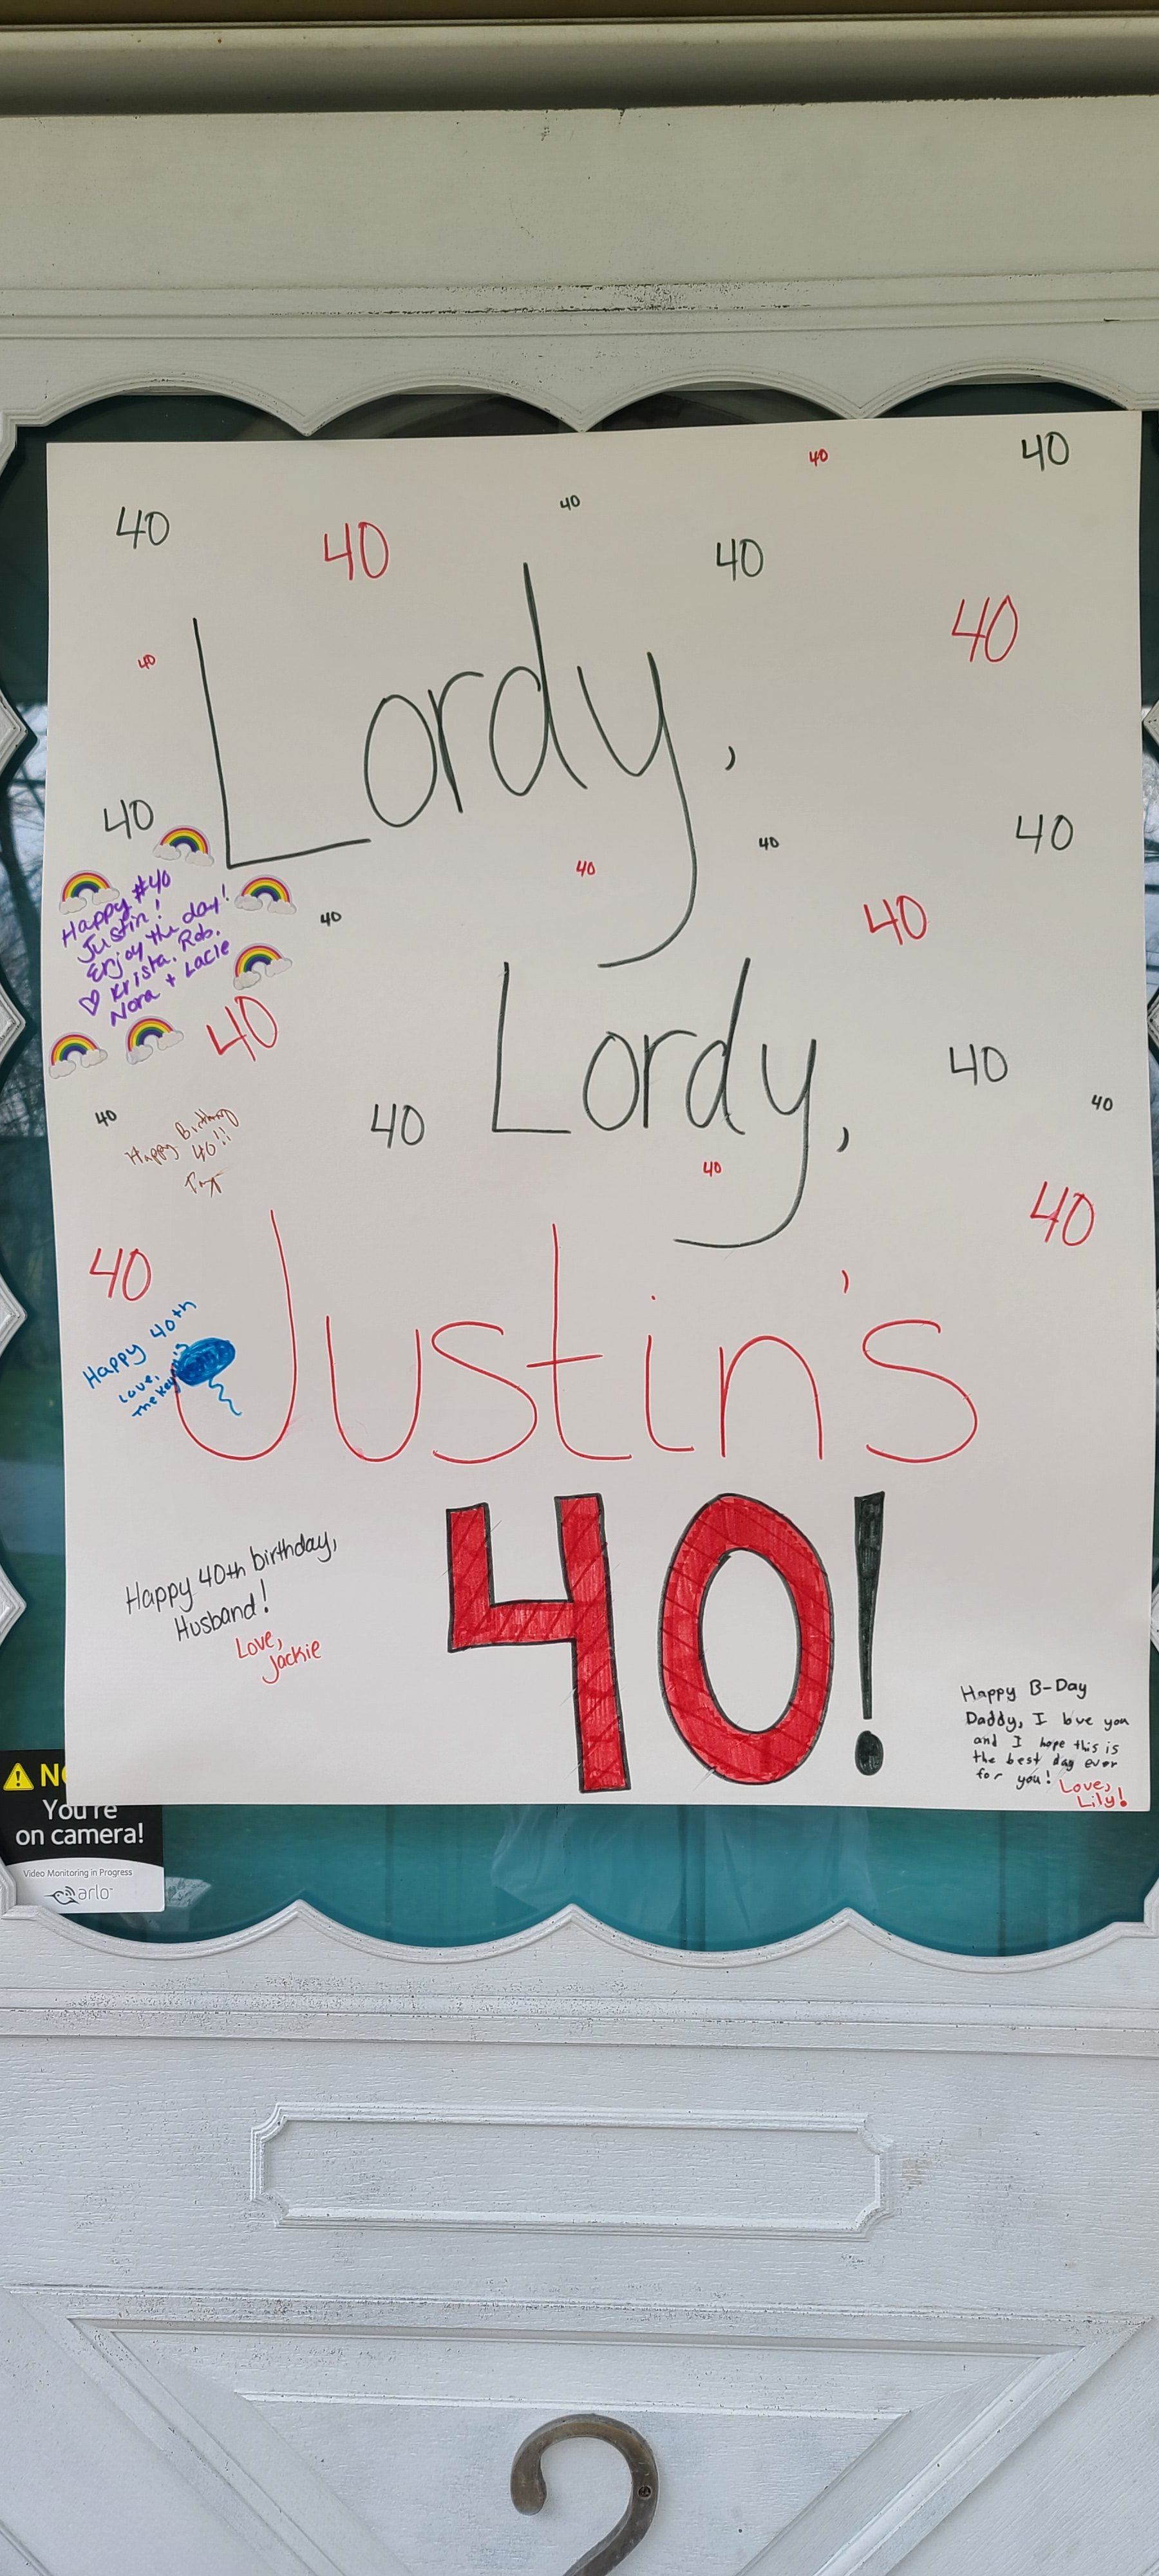 40
40
40
40
40
40
40
40
Lordy,
40
40
40
40
40
40
Happy #40
Justin!
Enjoy the day!
♡ Krista, Rob,
Nora + Lacie
40
Lordy,
40
40
40
40
40
40
Happy Birthday
40!!
40
Happy 40th
Love,
The
Justin's
40!
Happy 40th birthday,
Husband!
Love,
Jackie
Happy B-Day
Daddy, I love you
and I hope this is
the best day ever
for you! Love,
Lily!
You're
on camera!
Video Monitoring in Progress
arlo